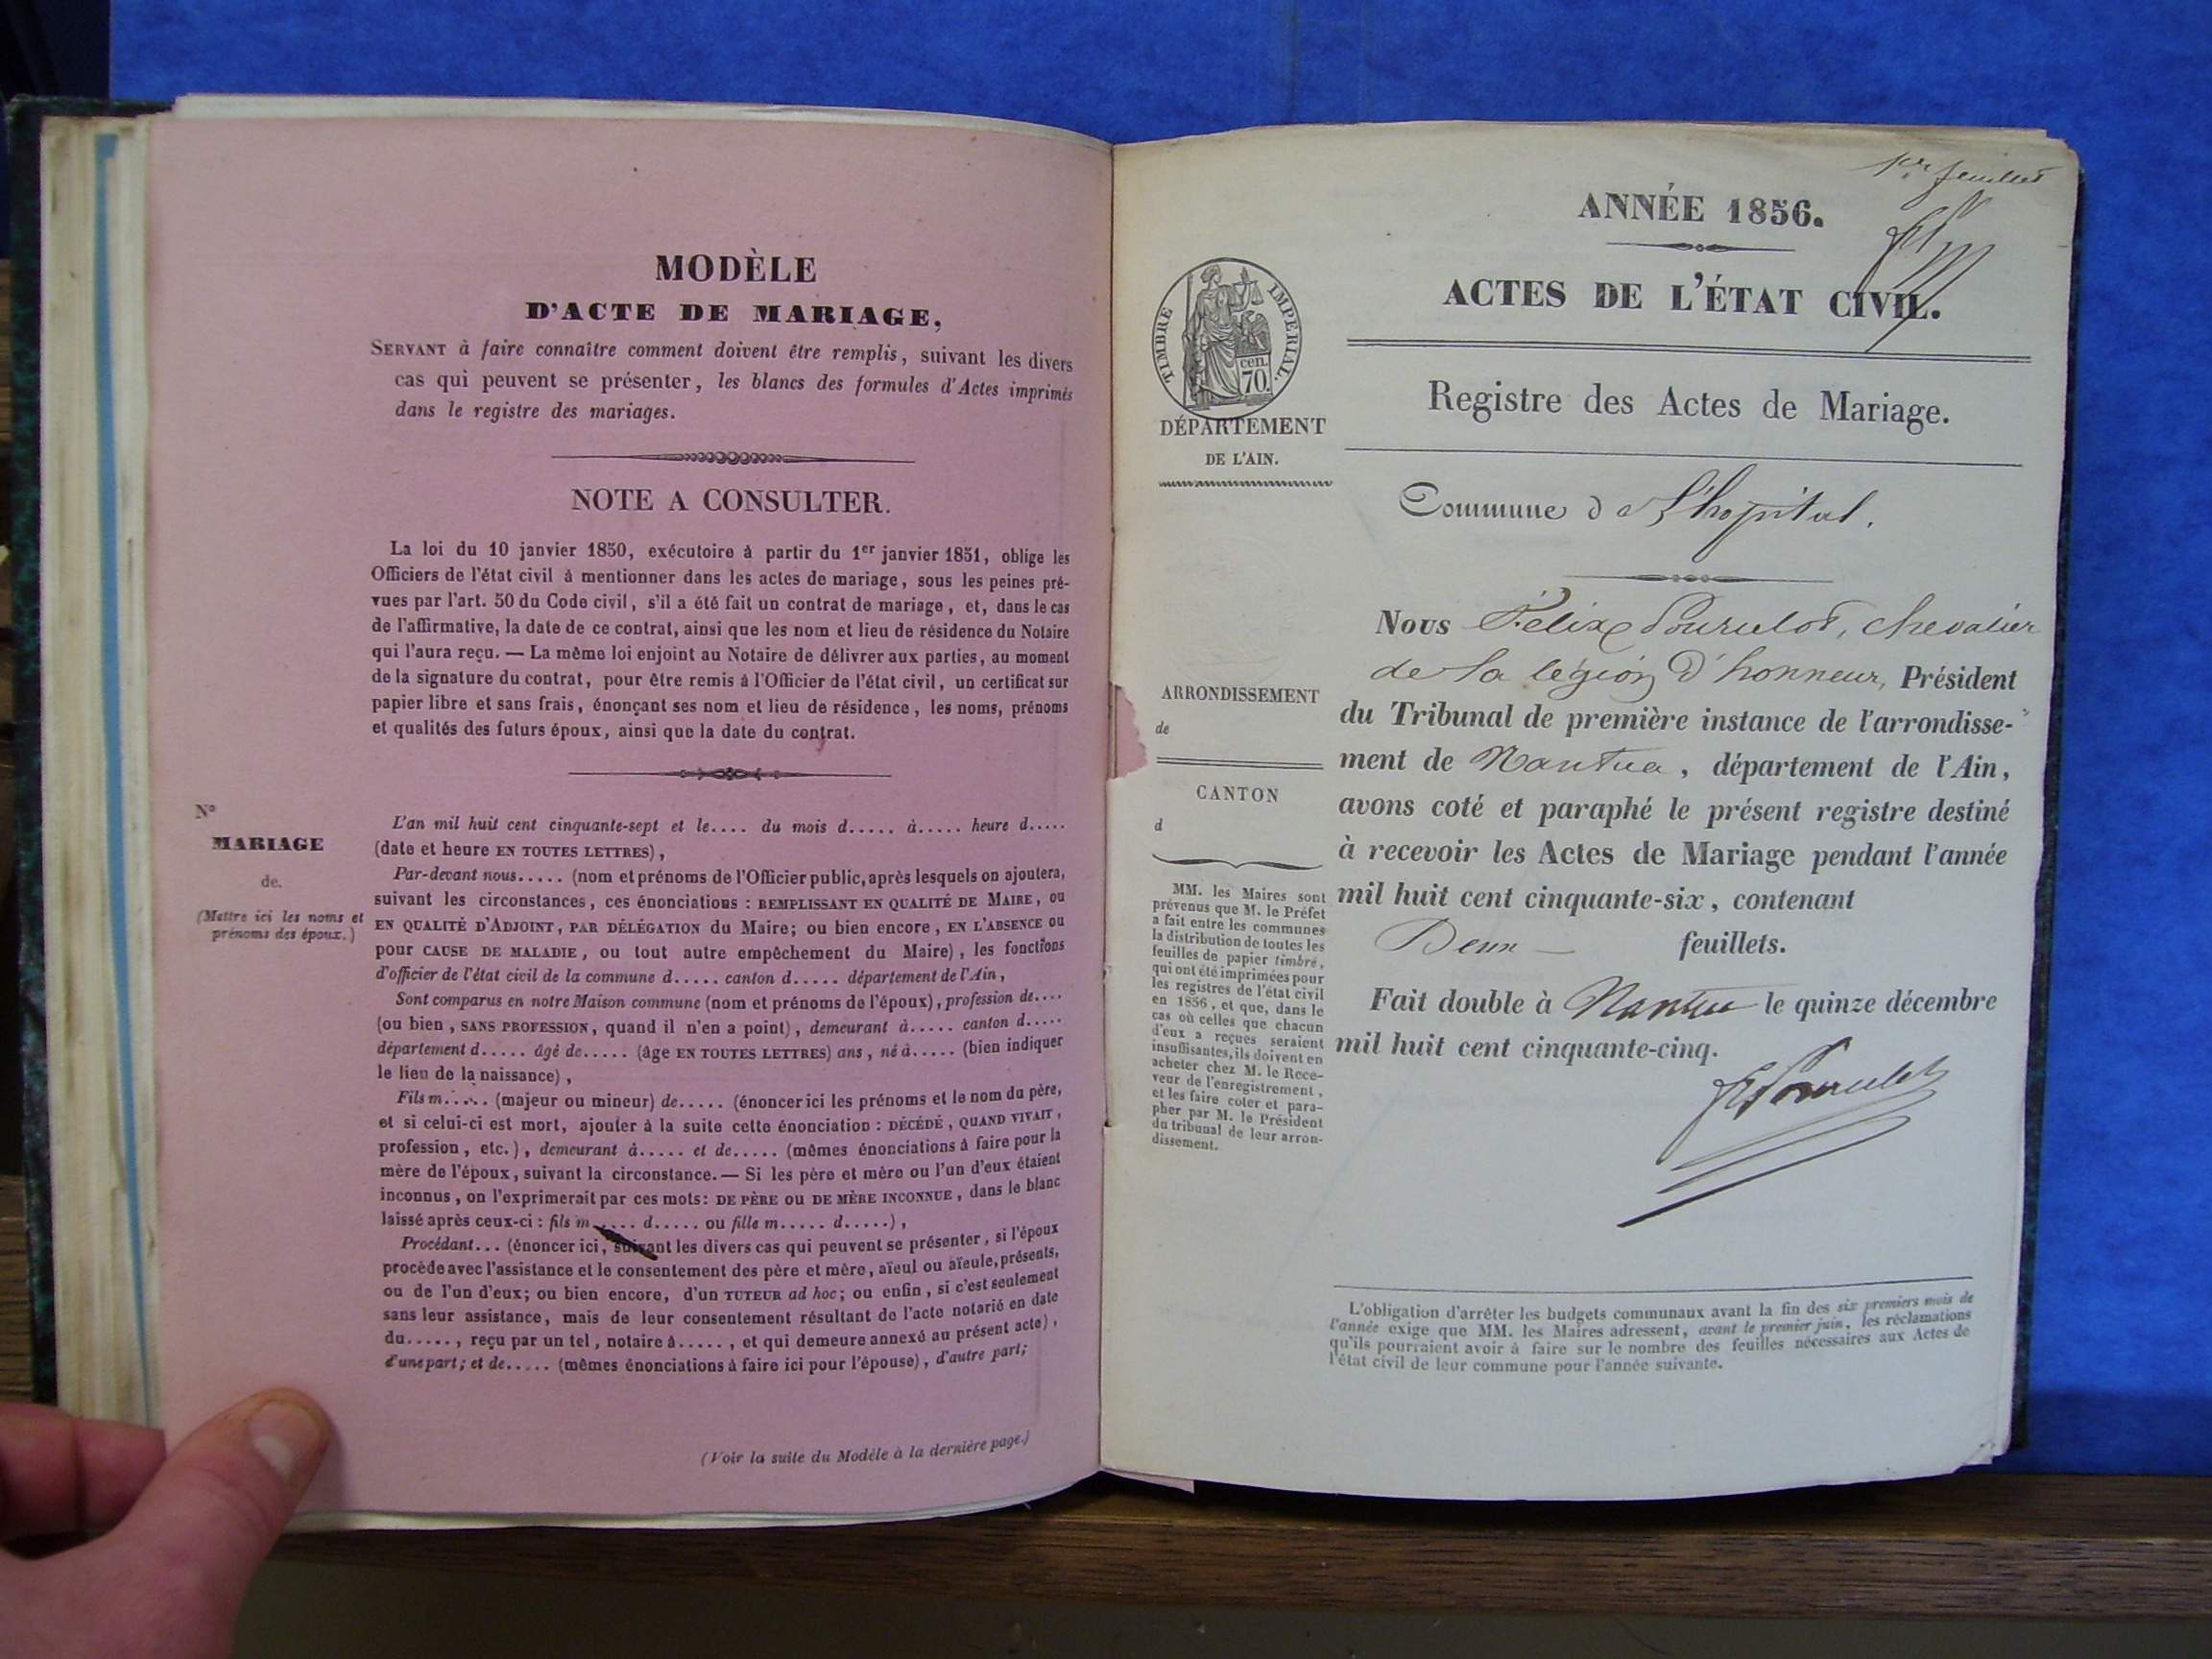 MODÈLE
D'ACTE DE MARIAGE,
SERVANT à faire connaître comment doivent être remplis, suivant les divers
cas qui peuvent se présenter, les blancs des formules d'Actes imprimés
dans le registre des mariages.
NOTE A CONSULTER.
La loi du 10 janvier 1850, exécutoire à partir du 1er janvier 1851, oblige les
Officiers de l'état civil à mentionner dans les actes de mariage, sous les peines pré-
vues par l'art. 50 du Code civil, s'il a été fait un contrat de mariage, et, dans le cas
de l'affirmative, la date de ce contrat, ainsi que les nom et lieu de résidence du Notaire
qui l'aura reçu. — La même loi enjoint au Notaire de délivrer aux parties, au moment
de la signature du contrat, pour être remis à l'Officier de l'état civil, un certificat sur
papier libre et sans frais, énonçant ses nom et lieu de résidence, les noms, prénoms
et qualités des futurs époux, ainsi que la date du contrat.
N°
MARIAGE
de.
(Mettre ici les noms et
prénoms des époux.)
L'an mil huit cent cinquante-sept et le.... du mois d..... à..... heure d.....
(date et heure EN TOUTES LETTRES),
Par-devant nous..... (nom et prénoms de l'Officier public, après lesquels on ajoutera,
suivant les circonstances, ces énonciations : REMPLISSANT EN QUALITÉ DE MAIRE, OU
EN QUALITÉ D'ADJOINT, PAR DÉLÉGATION du Maire; ou bien encore, EN L'ABSENCE OU
pour CAUSE DE MALADIE, ou tout autre empêchement du Maire), les fonctions
d'officier de l'état civil de la commune d..... canton d..... département de l'Ain,
Sont comparus en notre Maison commune (nom et prénoms de l'époux), profession de....
(ou bien, SANS PROFESSION, quand il n'en a point), demeurant à..... canton d.....
département d..... âgé de..... (âge EN TOUTES LETTRES) ans, né à..... (bien indiquer
le lieu de la naissance),
Fils m..... (majeur ou mineur) de..... (énoncer ici les prénoms et le nom du père,
et si celui-ci est mort, ajouter à la suite cette énonciation : DÉCÉDÉ, QUAND VIVAIT,
profession, etc.), demeurant à..... et de..... (mêmes énonciations à faire pour la
mère de l'époux, suivant la circonstance. — Si les père et mère ou l'un d'eux étaient
inconnus, on l'exprimerait par ces mots: DE PÈRE OU DE MÈRE INCONNUE, dans le blanc
laissé après ceux-ci : fils m..... d..... ou fille m..... d.....),
Procédant... (énoncer ici, suivant les divers cas qui peuvent se présenter, si l'époux
procède avec l'assistance et le consentement des père et mère, aïeul ou aïeule, présents,
ou de l'un d'eux; ou bien encore, d'un TUTEUR ad hoc; ou enfin, si c'est seulement
sans leur assistance, mais de leur consentement résultant de l'acte notarié en date
du....., reçu par un tel, notaire à....., et qui demeure annexé au présent acte),
d'une part; et de..... (mêmes énonciations à faire ici pour l'épouse), d'autre part;
(Voir la suite du Modèle à la dernière page.)
1er feuillet
ANNÉE 1856.
ACTES DE L'ÉTAT CIVIL.
TIMBRE IMPÉRIAL.
cen.
70.
DÉPARTEMENT
DE L'AIN.
Registre des Actes de Mariage.
Commune de L'hopital.
ARRONDISSEMENT
de
CANTON
d
MM. les Maires sont
prévenus que M. le Préfet
a fait entre les communes
la distribution de toutes les
feuilles de papier timbré,
qui ont été imprimées pour
les registres de l'état civil
en 1856, et que, dans le
cas où celles que chacun
d'eux a reçues seraient
insuffisantes, ils doivent en
acheter chez M. le Rece-
veur de l'enregistrement,
et les faire coter et para-
pher par M. le Président
du tribunal de leur arron-
dissement.
Nous Félix Pourulot, chevalier
de la légion d'honneur, Président
du Tribunal de première instance de l'arrondisse-
ment de Nantua, département de l'Ain,
avons coté et paraphé le présent registre destiné
à recevoir les Actes de Mariage pendant l'année
mil huit cent cinquante-six, contenant
Deux feuillets.
Fait double à Nantua le quinze décembre
mil huit cent cinquante-cinq.
L'obligation d'arrêter les budgets communaux avant la fin des six premiers mois de
l'année exige que MM. les Maires adressent, avant le premier juin, les réclamations
qu'ils pourraient avoir à faire sur le nombre des feuilles nécessaires aux Actes de
l'état civil de leur commune pour l'année suivante.